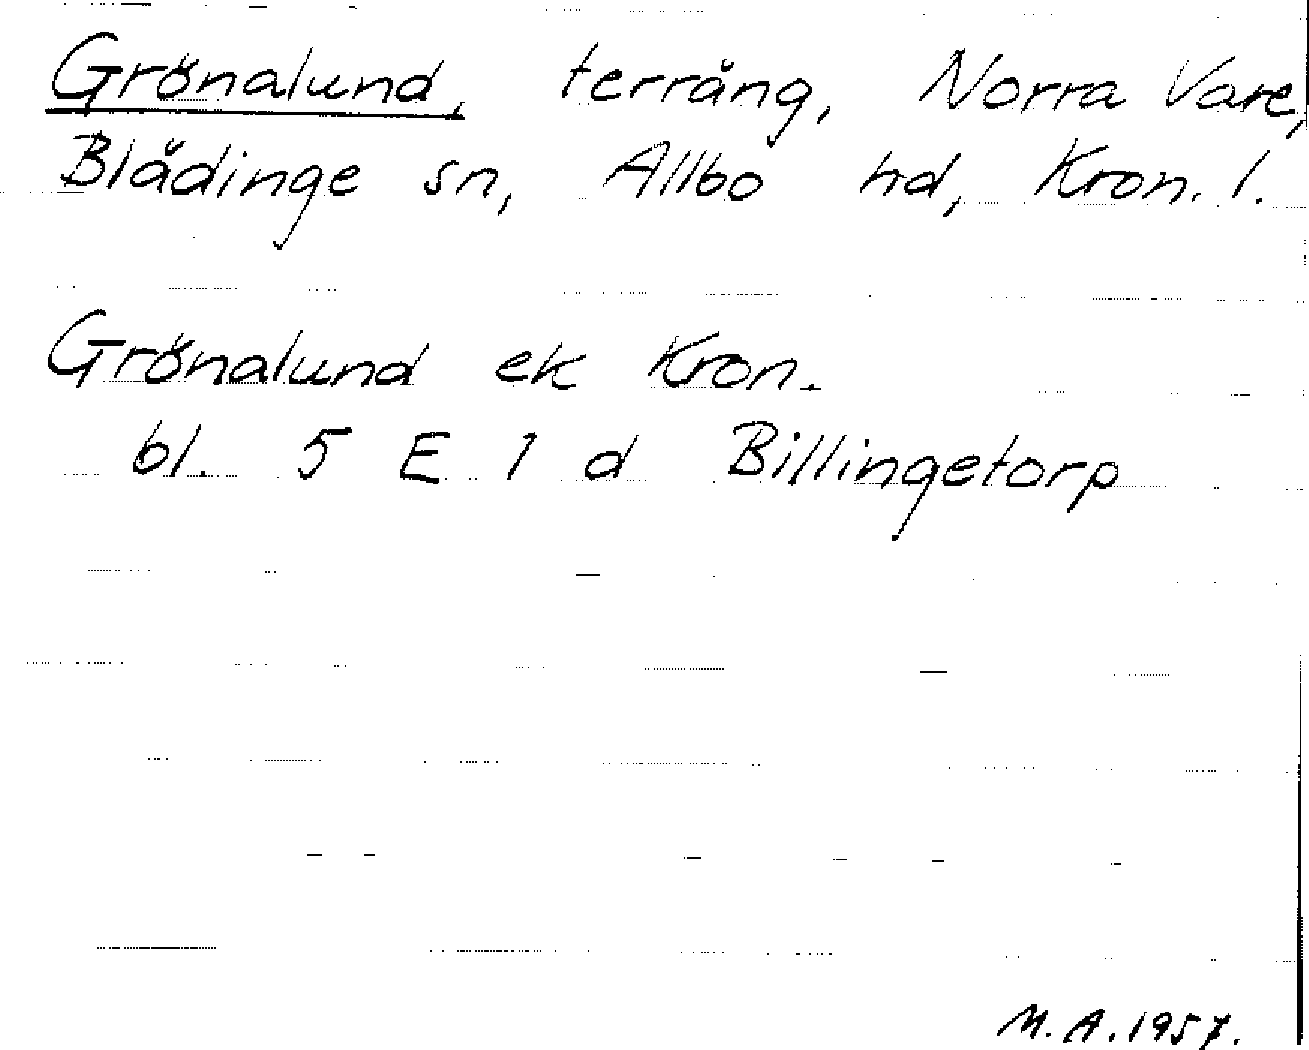 Grönalund, terräng, Norra Vare,
Blädinge sn, Allbo hd, Kron. l.
Grönalund ek Kron.
bl. 5 E 1 d Billingetorp
M.A. 1957.